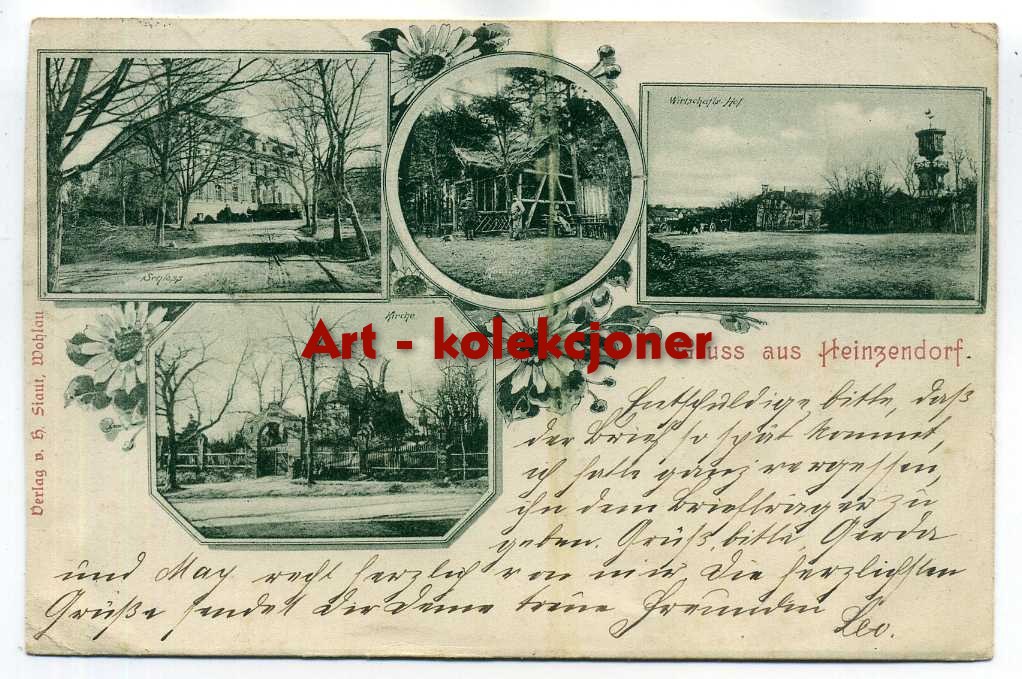 Wirtschafts-Hof
Schloss
Kirche
Art - kolekcjoner
Gruss aus Heinzendorf.
Verlag v. H. Siaut, Wohlau
Entschuldige bitte, daß
der Brief so spät kommt,
ich hatte ganz vergessen,
ihn dem Briefträger zu
geben. Grüß, bitte, Gerda
und Max recht herzlich von mir. Die herzlichsten
Grüße sendet Dir Deine treue Freundin
Leo.